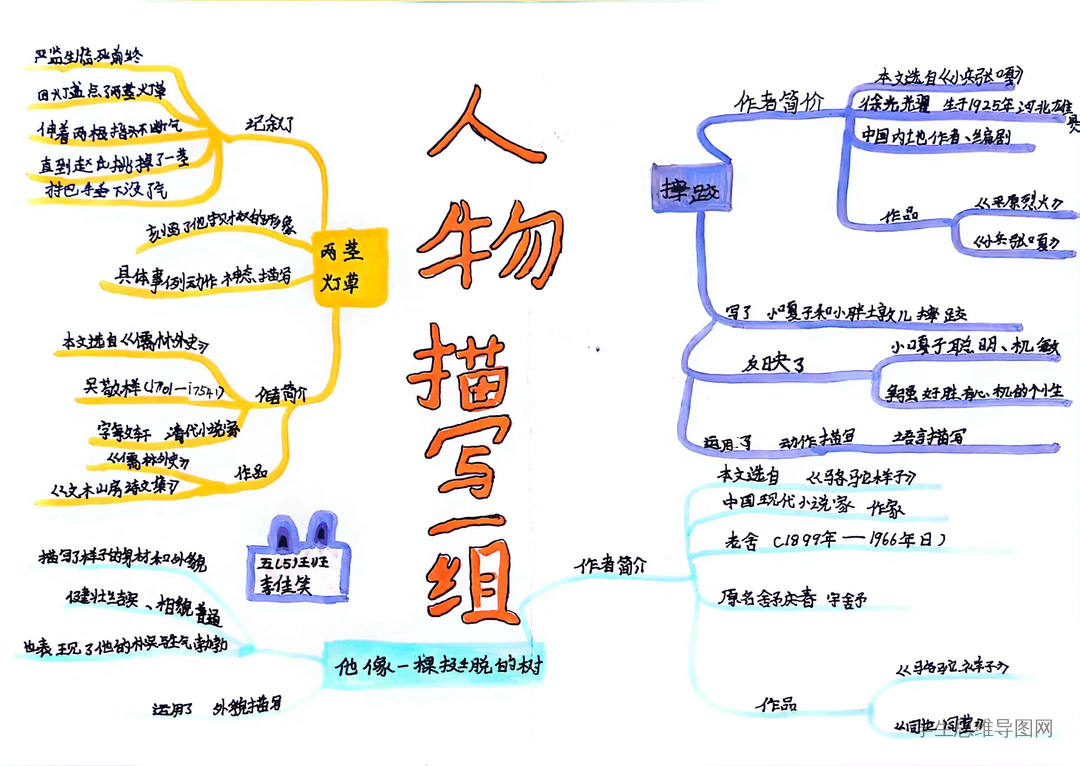 人物描写一组
五(5)班
李佳笑
两茎
灯草
记叙了
严监生临死前终
因灯盏点了两茎灯草
伸着两根指头不断气
直到赵氏挑掉了一茎
把手垂下没了气
刻画了他守财奴的形象
具体事例动作 神态描写
作者简介
本文选自《儒林外史》
吴敬梓(1701—1754)
字敏轩 清代小说家
作品
《儒林外史》
《文木山房诗文集》
摔跤
作者简价
本文选自《小兵张嘎》
徐光耀 生于1925年 河北雄县
中国内地作者、编剧
作品
《平原烈火》
《小兵张嘎》
写了 小嘎子和小胖墩儿 摔跤
反映了
小嘎子聪明、机敏
争强好胜,有心机的个性
运用了 动作描写 语言描写
他像一棵挺脱的树
作者简介
本文选自 《骆驼祥子》
中国现代小说家 作家
老舍 (1899年—1966年日)
原名舒庆春 字舍予
作品
《骆驼祥子》
描写了祥子的身材和外貌
健壮结实、相貌普通
也表现了他的朴实与生气勃勃
运用了 外貌描写
学生思维导图网